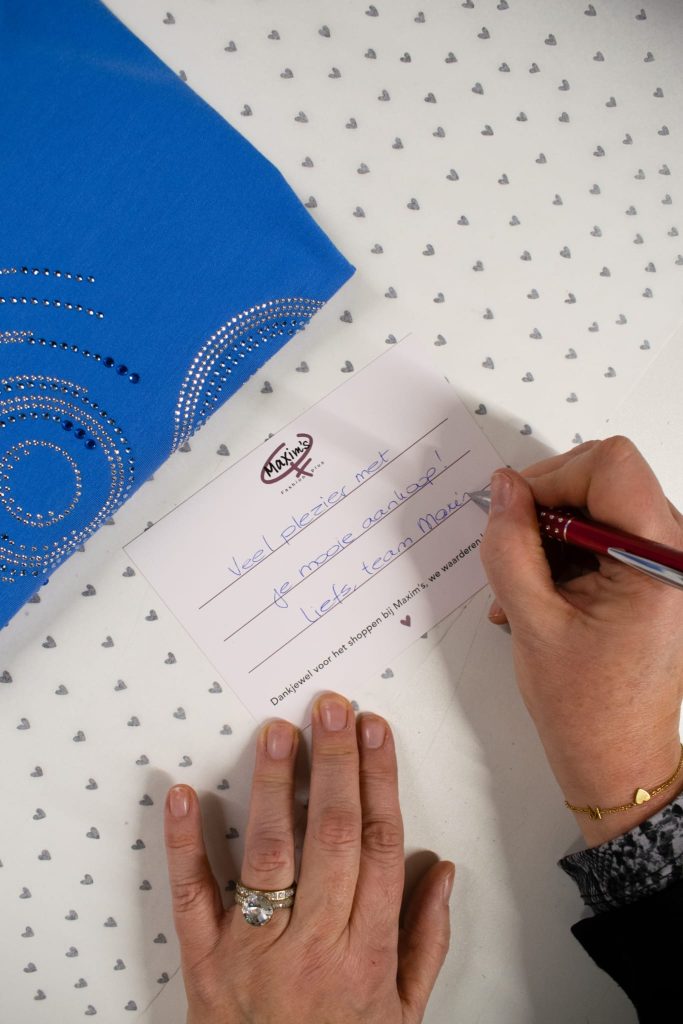 Maxim's
Fashion plus
Veel plezier met
je mooie aankoop!
liefs, team Maxim
Dankjewel voor het shoppen bij Maxim's, we waarderen